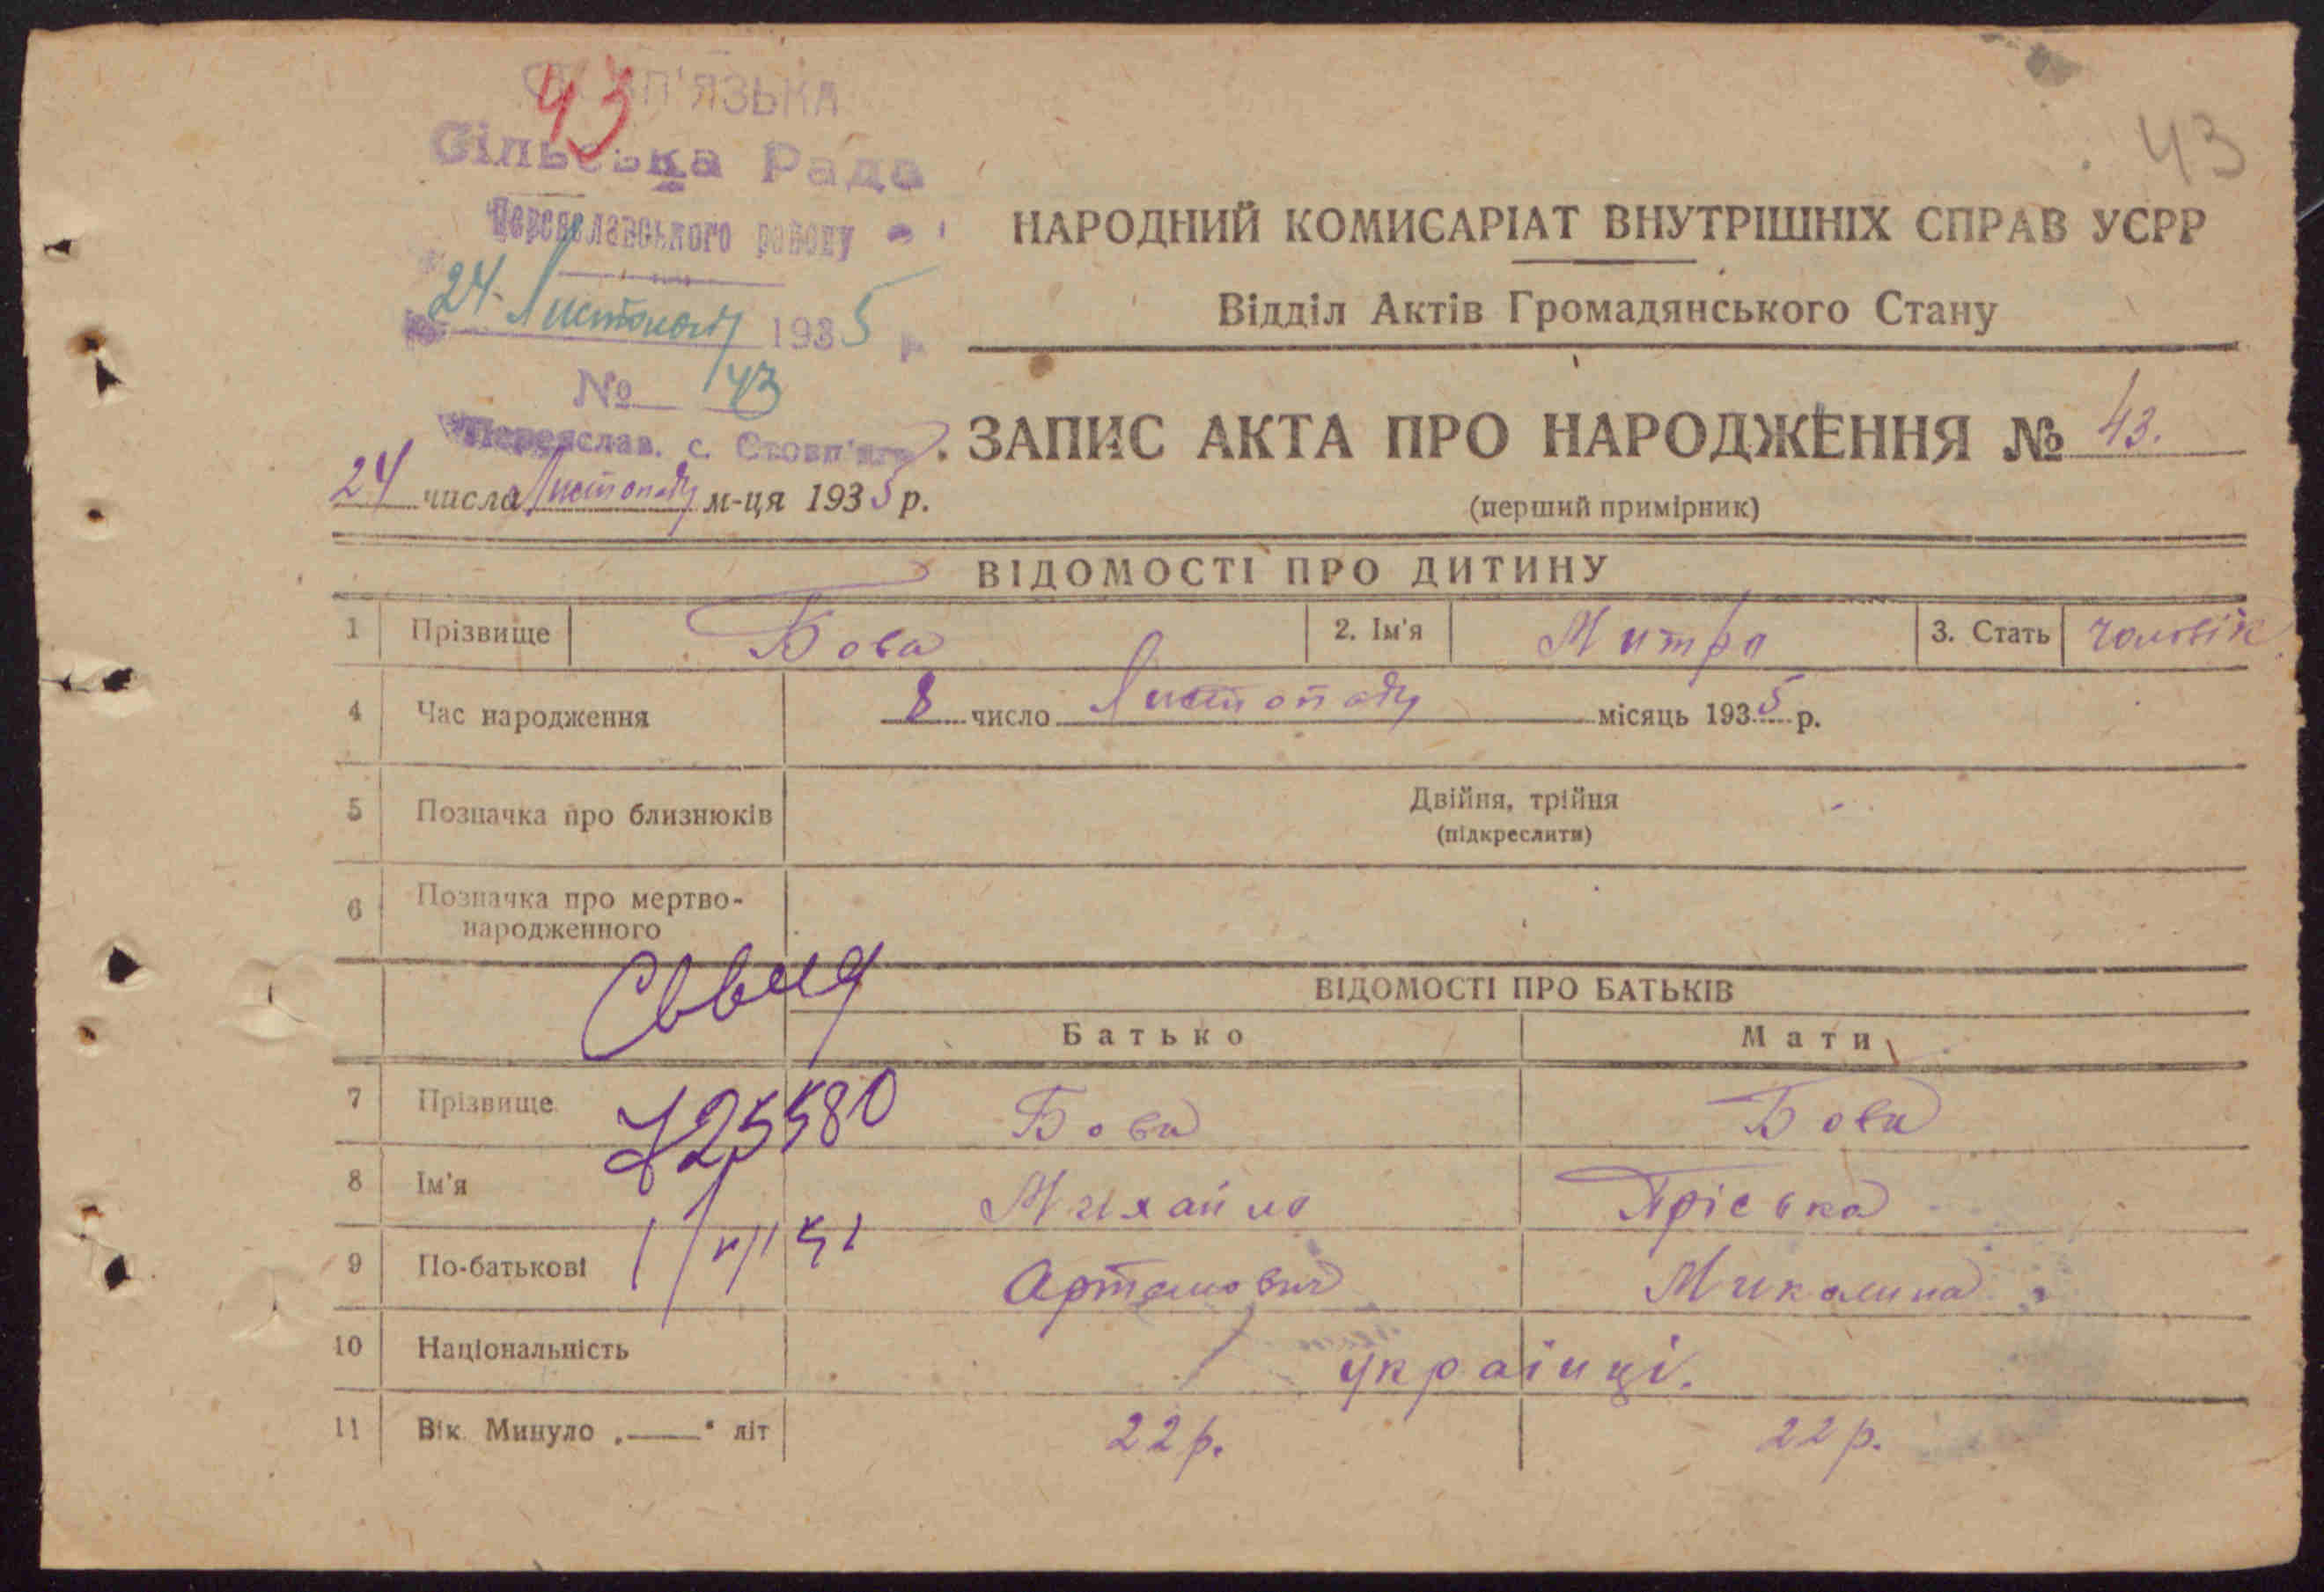 43
Сільська Рада
Переяславського району
24 Листопаду 1935 р.
№ 43
Переяслав. с. Стовп'яги
43
НАРОДНИЙ КОМИСАРІАТ ВНУТРІШНІХ СПРАВ УСРР
Відділ Актів Громадянського Стану
ЗАПИС АКТА ПРО НАРОДЖЕННЯ № 43.
(перший примірник)
24 числа Листопаду м-ця 1935 р.
ВІДОМОСТІ ПРО ДИТИНУ
1 Прізвище Бова 2. Ім'я Митро 3. Стать Чоловік
4 Час народження 8 число Листопаду місяць 1935 р.
5 Позначка про близнюків Двійня, трійня
(підкреслити)
6 Позначка про мертво-
народженного
ВІДОМОСТІ ПРО БАТЬКІВ
Батько Мати
7 Прізвище Бова Бова
8 Ім'я Михайло Пріська
9 По-батькові Артемович
10 Національність українці.
11 Вік. Минуло „——“ літ 22 р. 22 р.
725580